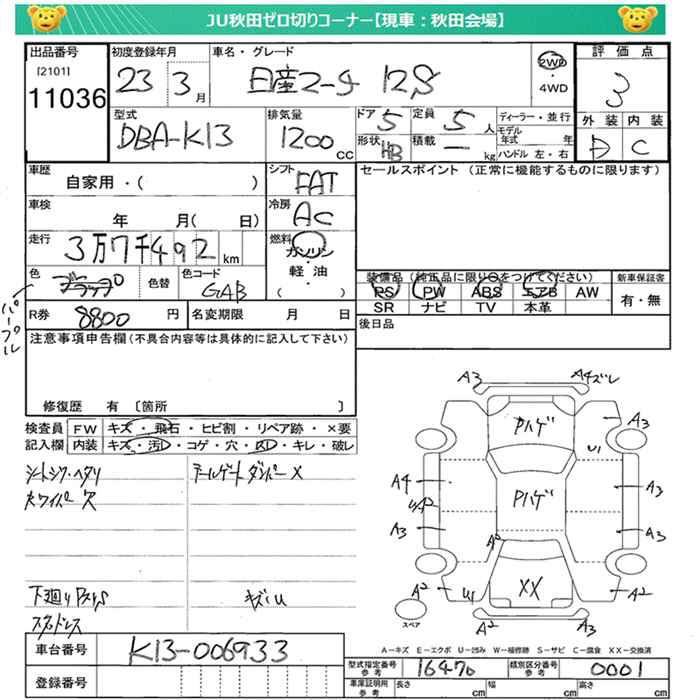 JU秋田ゼロ切りコーナー【現車：秋田会場】
出品番号 初度登録年月 車名・グレード 評価点
[2101]
11036
23 3月 日産マーチ 12S 2WD ・ 4WD 3
型式 排気量 ドア 定員 ディーラー・並行 外装 内装
DBA-K13 1200 CC 5 5人 モデル年式 年
形状 HB 積載 ー kg ハンドル 左・右 D C
車歴 シフト セールスポイント（正常に機能するものに限ります）
自家用・( ) FAT
車検 冷房
年 月( 日) AC
走行 燃料
3万7千492 km ガソリン・軽油
( )
色 色替 色コード
GAB
パープル
装備品（純正品に限り○をつけてください） 新車保証書
PS PW ABS エアB AW 有・無
SR ナビ TV 本革
R券 8800 円 名変期限 月 日 後日品
注意事項申告欄（不具合内容等は具体的に記入して下さい）
修復歴 有 〔箇所 〕
検査員 FW キズ・飛石・ヒビ割・リペア跡・×要
記入欄 内装 キズ・汚れ・コゲ・穴・凹・キレ・破レ
シートシワ・ヘタリ テールゲートダンパーX
穴
下廻りサビ キズ・U
スタッドレス
A3 A4ズレ
Pハゲ
A3
U1
A4
Pハゲ
A3
U A2
A3 A3
A2 U1 XX A2
A2 A3
スペア
A－キズ E－エクボ U－凹み W－補修跡 S－サビ C－腐食 XX－交換済
車台番号 K13-006933
型式指定番号 参考 16470 類別区分番号 参考 0001
登録番号
車庫証明用 参考 長さ cm 幅 cm 高さ cm